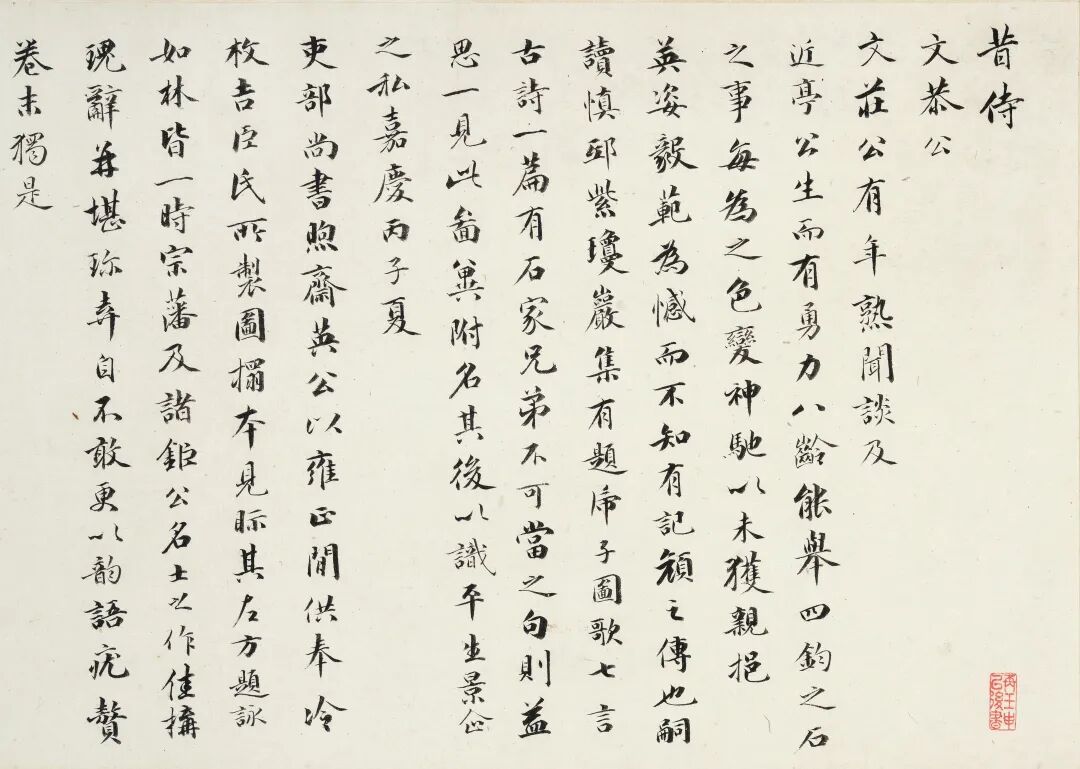 昔侍
文恭公
文莊公有年熟聞談及
近亭公生而有勇力八齡能舉四鈞之石
之事每為之色變神馳以未獲親挹
英姿毅範為憾而不知有記頑之傳也嗣
讀慎郡紫瓊巖集有題席子圖歌七言
古詩一篇有石家兄弟不可當之句則益
思一見此啚冀附名其後以識平生景企
之私嘉慶丙子夏
吏部尚書煦齋英公以雍正間供奉冷
枚吉臣氏所製圖搨本見眎其左方題詠
如林皆一時宗藩及諸鉅公名士之作佳構
瑰辭並堪珎弆自不敢更以韵語疣贅
卷末獨是